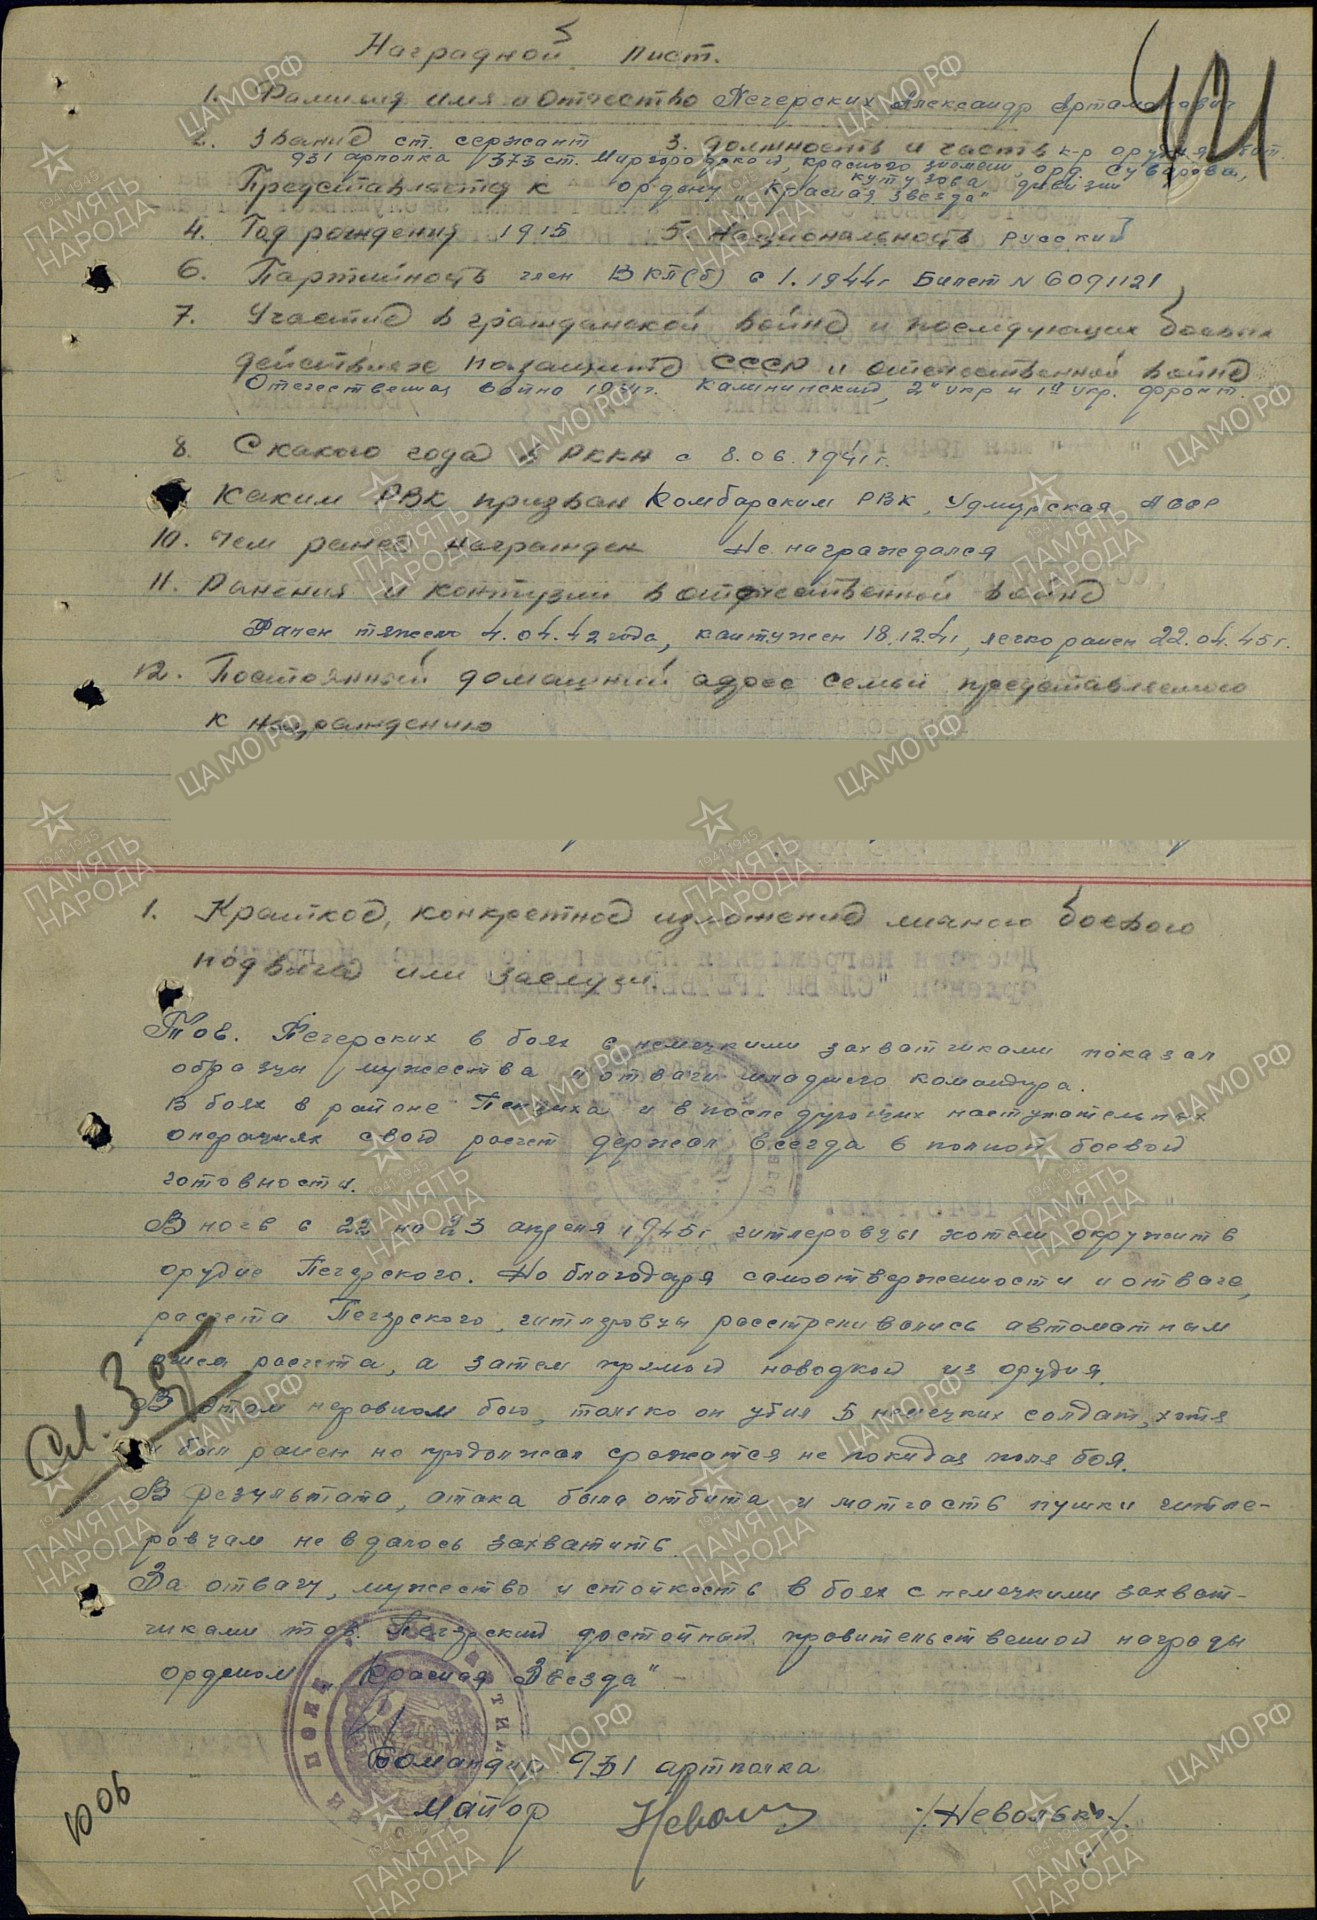 Наградной лист.
421
1. Фамилия имя и отчество Печерских Александр Артамонович
2. Звание ст. сержант 3. должность и часть к-р орудия бат.
931 артполка 373 ст. Миргородской, красного знамени, орд. Суворова,
Кутузова дивизии
Представляется к ордену "Красная звезда"
4. Год рождения 1915 5. Национальность русский
6. Партийность член ВКП(б) с 1.1944г Билет № 6091121
7. Участие в гражданской войне и последующих боевых
действиях по защите СССР и отечественной войне
Отечественная война 1941г. Калининский, 2й укр и 1й укр. фронт.
8. С какого года в РККА с 8.06.1941г.
Каким РВК призван Комбарским РВК, Удмурская АССР
10. Чем ранее награжден Не награждался
11. Ранения и контузии в отечественной войне
Ранен тяжело 4.04.42 года, контужен 18.12.41, легко ранен 22.04.45г.
12. Постоянный домашний адрес семьи представляемого
к награждению
1. Краткое, конкретное изложение личного боевого
подвига или заслуги
Тов. Печерских в боях с немецкими захватчиками показал
образцы мужества и отваги младшего командира.
В боях в районе Пенциха и в последующих наступательных
операциях свой расчет держал всегда в полной боевой
готовности.
В ночь с 22 на 23 апреля 1945г гитлеровцы хотели окружить
орудие Печерского. Но благодаря самоотверженности и отваге,
расчета Печерского, гитлеровцы расстреливались автоматным
огнем расчета, а затем прямой наводкой из орудия.
В этом неровном бою, только он убил 5 немецких солдат, хотя
и был ранен но продолжал сражатся не покидая поля боя.
В результата, атака была отбита и матчасть пушки гитле-
ровцам не вдалось захватить.
За отвагу, мужество и стойкость в боях с немецкими захват-
чиками тов. Печерский достойный правительственной награды
орденом "Красная Звезда"
Командир 931 артполка
майор /Неволько/